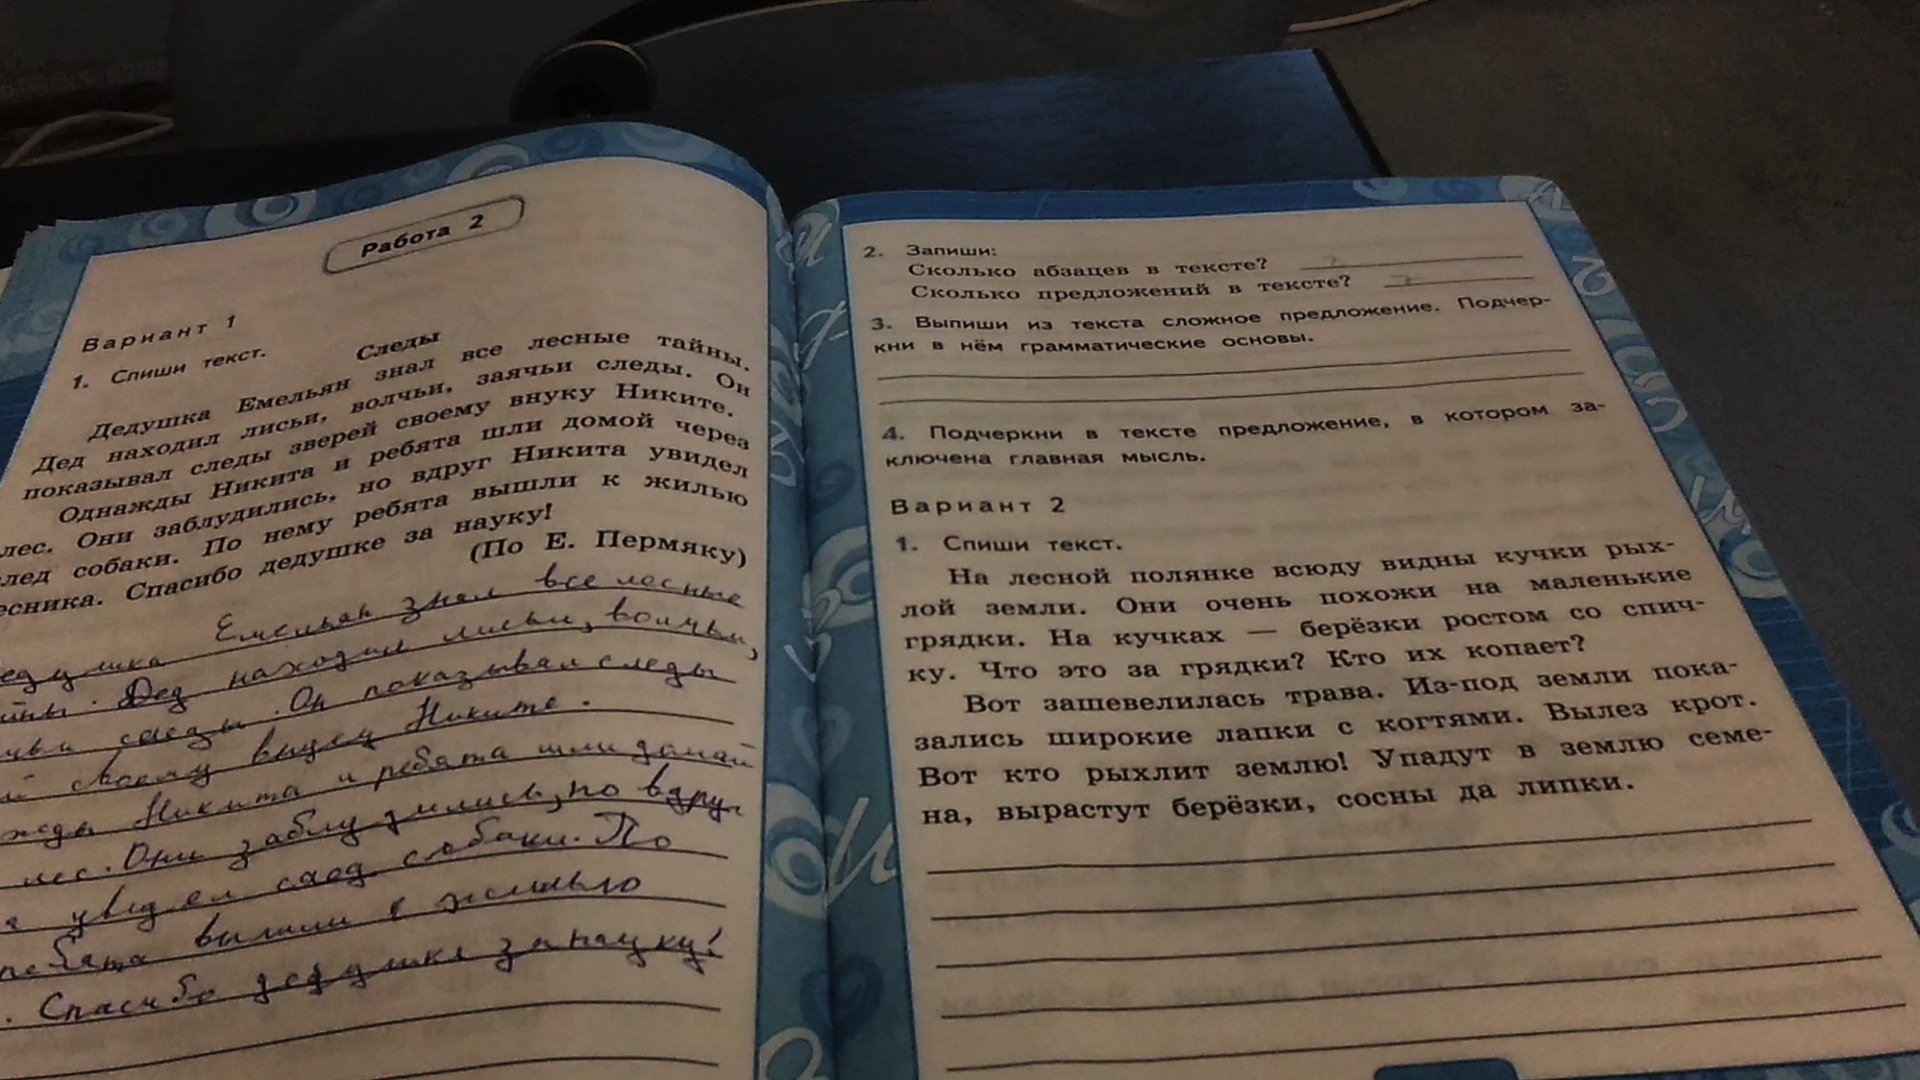 Работа 2
Вариант 1
1. Спиши текст.
Следы
Дедушка Емельян знал все лесные тайны.
Дед находил лисьи, волчьи, заячьи следы. Он
показывал следы зверей своему внуку Никите.
Однажды Никита и ребята шли домой через
лес. Они заблудились, но вдруг Никита увидел
след собаки. По нему ребята вышли к жилью
есника. Спасибо дедушке за науку!
(По Е. Пермяку)
едушка Емельян знал все лесные
йны. Дед находил лисьи, волчьи,
чьи следы. Он показывал следы
й своему внуку Никите.
жды Никита и ребята шли домой
лес. Они заблудились, но вдруг
а увидел след собаки. По
ребята вышли к жилью
. Спасибо дедушке за науку!
2. Запиши:
Сколько абзацев в тексте? 2
Сколько предложений в тексте? 7
3. Выпиши из текста сложное предложение. Подчер-
кни в нём грамматические основы.
4. Подчеркни в тексте предложение, в котором за-
ключена главная мысль.
Вариант 2
1. Спиши текст.
На лесной полянке всюду видны кучки рых-
лой земли. Они очень похожи на маленькие
грядки. На кучках — берёзки ростом со спич-
ку. Что это за грядки? Кто их копает?
Вот зашевелилась трава. Из-под земли пока-
зались широкие лапки с когтями. Вылез крот.
Вот кто рыхлит землю! Упадут в землю семе-
на, вырастут берёзки, сосны да липки.